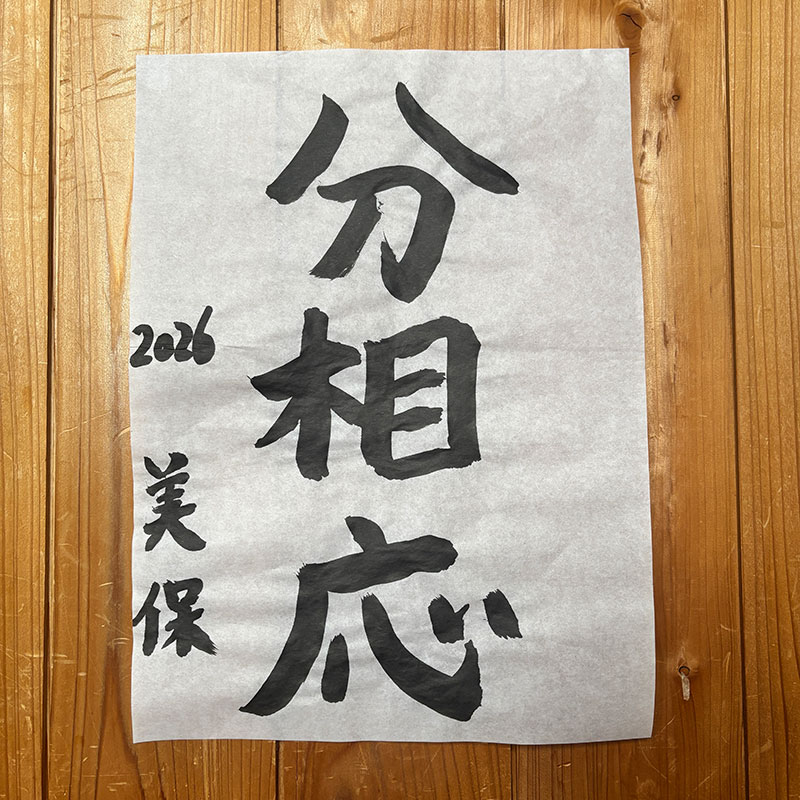 分相応
2026 美保